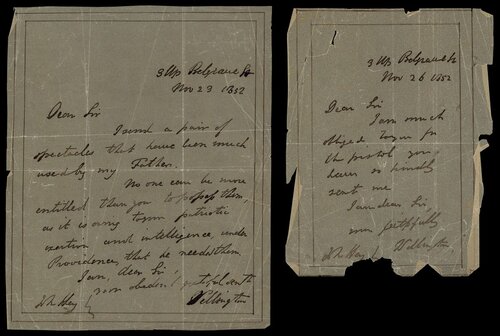 3 Up Belgrave St
Nov 23 1852
Dear Sir
I send a pair of
spectacles that have been much
used by my Father.
No one can be more
entitled than you to possess them,
as it is owing to your patriotic
exertion and intelligence, under
Providence, that he needed them.
I am, dear Sir
your obedient grateful servt
Wellington
3 Up Belgrave St
Nov 26 1852
Dear Sir
I am much
obliged to you for
the pistol you
have so kindly
sent me
I am dear Sir
yours faithfully
Wellington